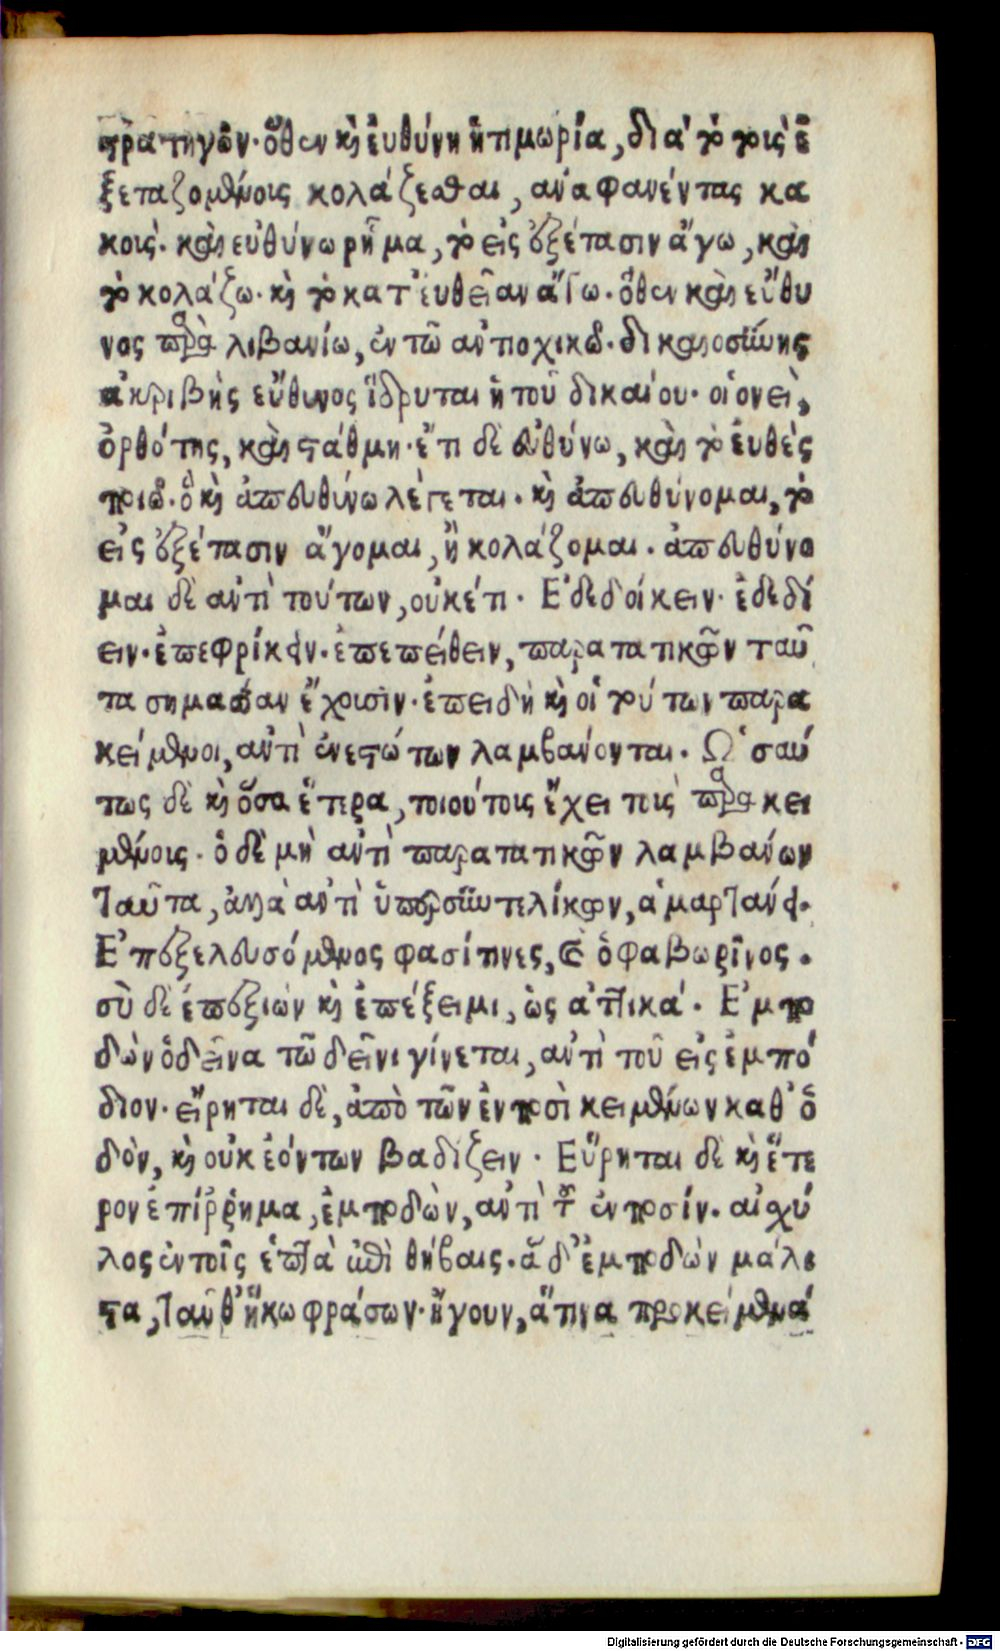 στρατηγῶν. ὅθεν καὶ εὐθύνη ἡ τιμωρία, διὰ τὸ τοὺς ἐ
ξεταζομένους κολάζεσθαι, ἀναφανέντας κα
κούς. καὶ εὐθύνω ῥῆμα, τὸ εἰς ἐξέτασιν ἄγω, καὶ
τὸ κολάζω. καὶ τὸ κατ' εὐθεῖαν ἄγω. ὅθεν καὶ εὔθυ
νος παρὰ λιβανίω, ἐν τῶ ἀντιοχικῶ. δικαιοσύνης
ἀκριβὴς εὔθυνος ἵδρυται ἡ τοῦ δικαίου. οἱονεὶ,
ὀρθότης, καὶ στάθμη. ἔτι δὲ εὐθύνω, καὶ τὸ εὐθὲς
ποιῶ. ὃ καὶ ἀπευθύνω λέγεται. καὶ ἀπευθύνομαι, τὸ
εἰς ἐξέτασιν ἄγομαι, ἢ κολάζομαι. ἀπευθύνο
μαι δὲ ἀντὶ τούτων, οὐκέτι. Ἐδεδοίκειν. ἐδεδί
ειν. ἐπεφρίκειν. ἐπεποίθειν, παρατατικῶν ταῦ
τα σημασίαν ἔχουσιν. ἐπειδὴ καὶ οἱ τούτων παρα
κείμενοι, ἀντὶ ἐνεστώτων λαμβάνονται. Ὡσαύ
τως δὲ καὶ ὅσα ἕτερα, τοιούτους ἔχει τοὺς παρακει
μένους. ὁ δὲ μὴ ἀντὶ παρατατικῶν λαμβάνων
ταῦτα, ἀλλὰ ἀντὶ ὑπερσυντελίκων, ἁμαρτάνει.
Ἐπεξελευσόμενος φασί τινες, καὶ ὁ φαβωρῖνος.
σὺ δὲ ἐπεξιὼν καὶ ἐπέξειμι, ὡς ἀττικά. Ἐμπο
δὼν ὁ δεῖνα τῶ δεῖνι γίνεται, ἀντὶ τοῦ εἰς ἐμπό
διον. εἴρηται δὲ, ἀπὸ τῶν ἐν ποσὶ κειμένων καθ' ὁ
δὸν, καὶ οὐκ ἐόντων βαδίζειν. Εὕρηται δὲ καὶ ἕτε
ρον ἐπίῤῥημα, ἐμποδὼν, ἀντὶ τοῦ ἐν ποσίν. αἰσχύ
λος ἐν τοῖς ἑπτὰ ἐπὶ θήβαις. ἃ δ' ἐμποδὼν μάλι
στα, ταῦθ' ἥκω φράσων. ἤγουν, ἅτινα προκείμενά
Digitalisierung gefördert durch die Deutsche Forschungsgemeinschaft - DFG